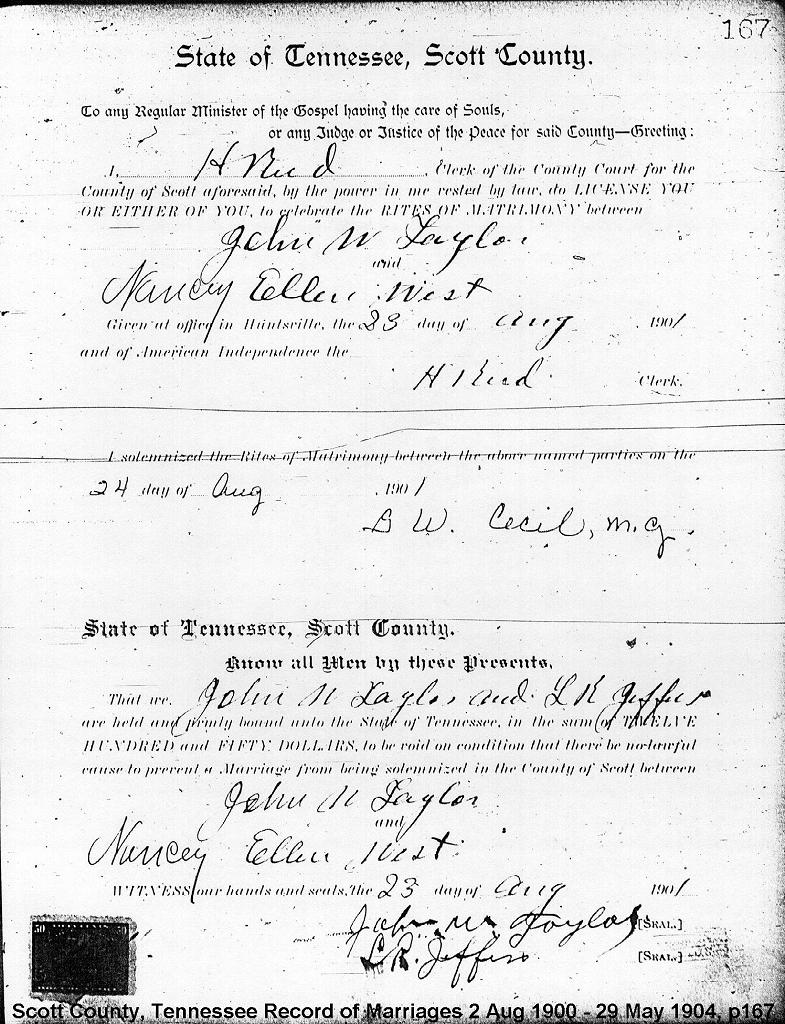 167
State of Tennessee, Scott County.
To any Regular Minister of the Gospel having the care of Souls,
or any Judge or Justice of the Peace for said County—Greeting:
I, H Reed, Clerk of the County Court for the
County of Scott aforesaid, by the power in me vested by law, do LICENSE YOU
OR EITHER OF YOU, to celebrate the RITES OF MATRIMONY between
John W Taylor
and
Nancey Ellen West
Given at office in Huntsville, the 23 day of Aug 1901
and of American Independence the
H Reed Clerk.
I solemnized the Rites of Matrimony between the above named parties on the
24 day of Aug 1901
B W. Cecil, M.G.
State of Tennessee, Scott County.
Know all Men by these Presents,
That we, John W Taylor and L R Jeffers
are held and firmly bound unto the State of Tennessee, in the sum of TWELVE
HUNDRED and FIFTY DOLLARS, to be void on condition that there be no lawful
cause to prevent a Marriage from being solemnized in the County of Scott between
John W Taylor
and
Nancey Ellen West
WITNESS our hands and seals, the 23 day of Aug 1901
John W Taylor [SEAL.]
L R. Jeffers [SEAL.]
50 50
Scott County, Tennessee Record of Marriages 2 Aug 1900 - 29 May 1904, p167